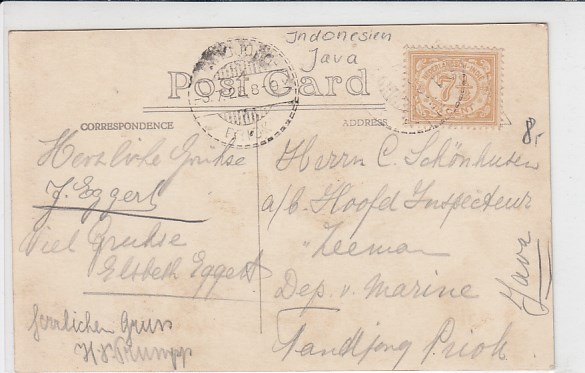 Indonesien
Java
Post Card
CORRESPONDENCE
ADDRESS
8,-
7½
Herzliche Grüsse
J. Eggert
Viel Grüsse
Elsbeth Eggert
Herrlichen Gruss
Herrn C. Schönhusen
a/b. Hoofd Inspecteur
Zeeman
Dep. v. Marine
Tandjong Priok
Java